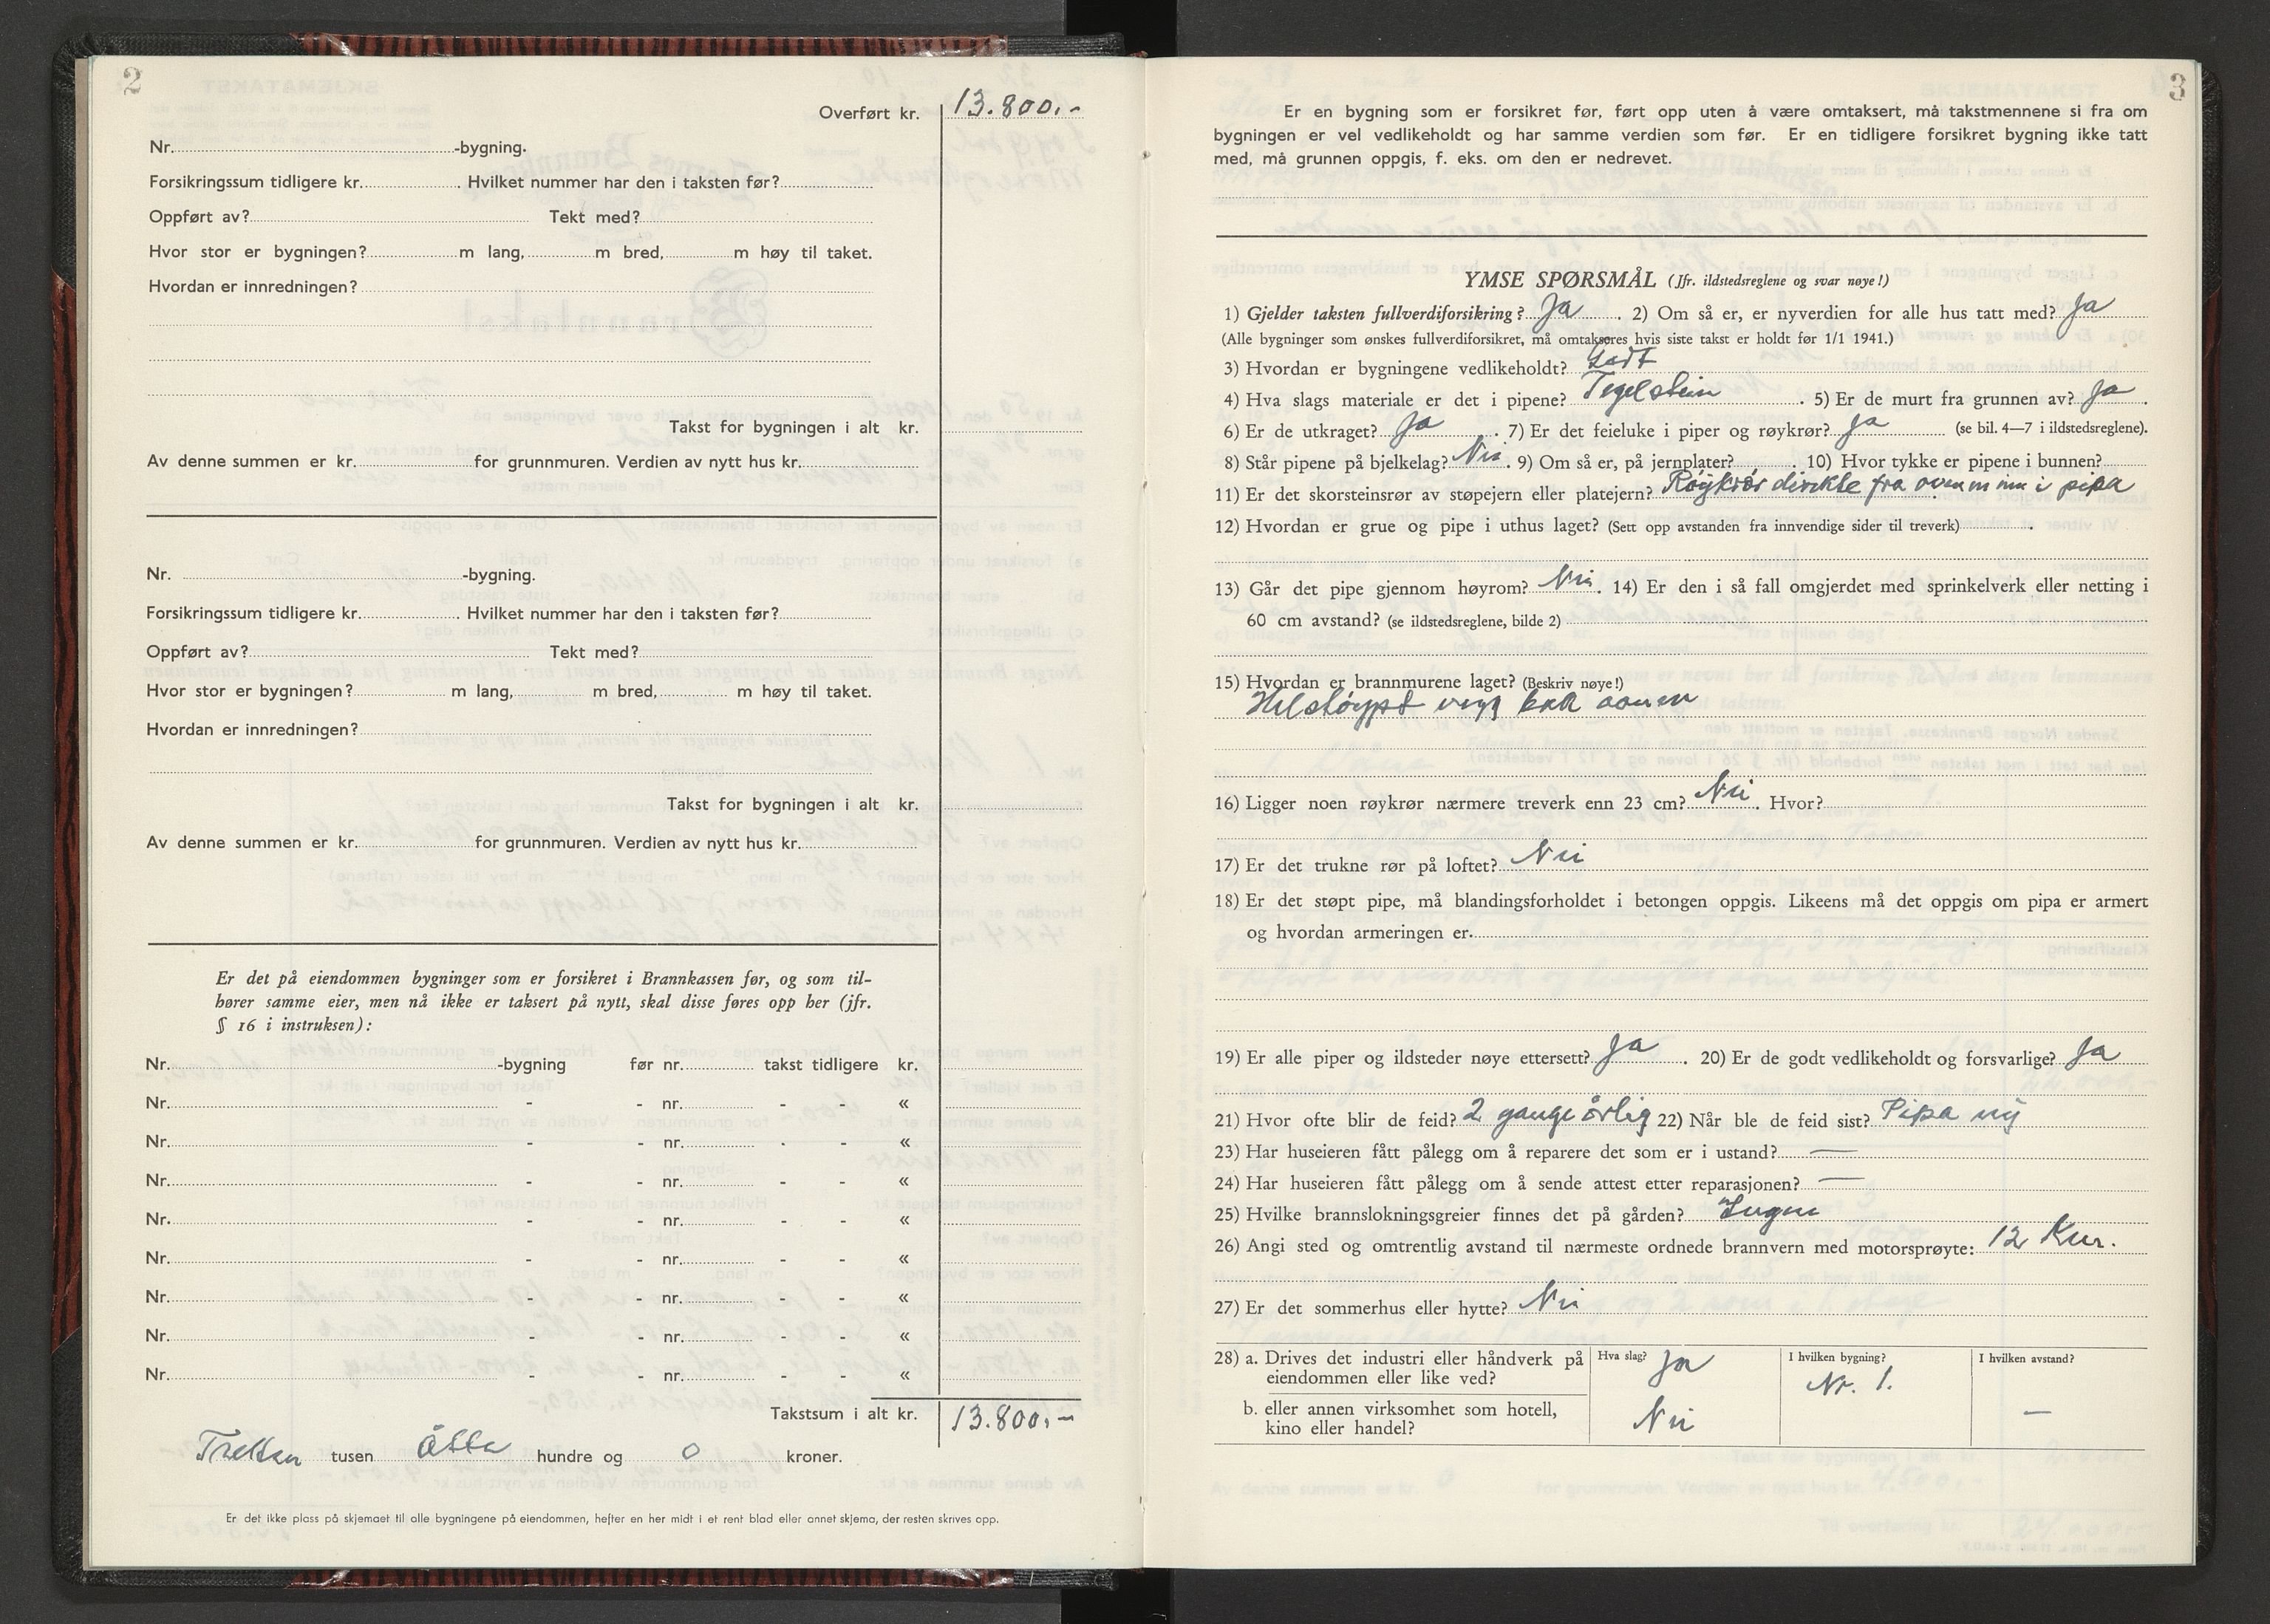 2
Overført kr. 13.800,-
Nr. -bygning.
Forsikringssum tidligere kr. . Hvilket nummer har den i taksten før?
Oppført av? Tekt med?
Hvor stor er bygningen? m lang, m bred, m høy til taket.
Hvordan er innredningen?
Takst for bygningen i alt kr.
Av denne summen er kr. for grunnmuren. Verdien av nytt hus kr.
Nr. -bygning.
Forsikringssum tidligere kr. . Hvilket nummer har den i taksten før?
Oppført av? Tekt med?
Hvor stor er bygningen? m lang, m bred, m høy til taket.
Hvordan er innredningen?
Takst for bygningen i alt kr.
Av denne summen er kr. for grunnmuren. Verdien av nytt hus kr.
Er det på eiendommen bygninger som er forsikret i Brannkassen før, og som til-
hører samme eier, men nå ikke er taksert på nytt, skal disse føres opp her (jfr.
§ 16 i instruksen):
Nr. -bygning før nr. takst tidligere kr.
Nr. - - nr. - - «
Nr. - - nr. - - «
Nr. - - nr. - - «
Nr. - - nr. - - «
Nr. - - nr. - - «
Nr. - - nr. - - «
Nr. - - nr. - - «
Nr. - - nr. - - «
Takstsum i alt kr. 13.800,-
Tretten tusen åtte hundre og 0 kroner.
Er det ikke plass på skjemaet til alle bygningene på eiendommen, hefter en her midt i et rent blad eller annet skjema, der resten skrives opp.
3
Er en bygning som er forsikret før, ført opp uten å være omtaksert, må takstmennene si fra om
bygningen er vel vedlikeholdt og har samme verdien som før. Er en tidligere forsikret bygning ikke tatt
med, må grunnen oppgis, f. eks. om den er nedrevet.
YMSE SPØRSMÅL (Jfr. ildstedsreglene og svar nøye!)
1) Gjelder taksten fullverdiforsikring? Ja . 2) Om så er, er nyverdien for alle hus tatt med? Ja
(Alle bygninger som ønskes fullverdiforsikret, må omtakseres hvis siste takst er holdt før 1/1 1941.)
3) Hvordan er bygningene vedlikeholdt? Godt
4) Hva slags materiale er det i pipene? Tegelstein . 5) Er de murt fra grunnen av? Ja .
6) Er de utkraget? Ja . 7) Er det feieluke i piper og røykrør? Ja (se bil. 4—7 i ildstedsreglene).
8) Står pipene på bjelkelag? Nei . 9) Om så er, på jernplater? . 10) Hvor tykke er pipene i bunnen?
11) Er det skorsteinsrør av støpejern eller platejern? Røykrør direkte fra ovnen inn i pipa
12) Hvordan er grue og pipe i uthus laget? (Sett opp avstanden fra innvendige sider til treverk) .
13) Går det pipe gjennom høyrom? Nei . 14) Er den i så fall omgjerdet med sprinkelverk eller netting i
60 cm avstand? (se ildstedsreglene, bilde 2)
15) Hvordan er brannmurene laget? (Beskriv nøye!)
Helstøypt vegg bak ovnen
16) Ligger noen røykrør nærmere treverk enn 23 cm? Nei . Hvor?
17) Er det trukne rør på loftet? Nei
18) Er det støpt pipe, må blandingsforholdet i betongen oppgis. Likeens må det oppgis om pipa er armert
og hvordan armeringen er.
19) Er alle piper og ildsteder nøye ettersett? Ja . 20) Er de godt vedlikeholdt og forsvarlige? Ja
21) Hvor ofte blir de feid? 2 gange årlig 22) Når ble de feid sist? Pipa ny
23) Har huseieren fått pålegg om å reparere det som er i ustand? —
24) Har huseieren fått pålegg om å sende attest etter reparasjonen? —
25) Hvilke brannslokningsgreier finnes det på gården? Ingen
26) Angi sted og omtrentlig avstand til nærmeste ordnede brannvern med motorsprøyte: 12 Km.
27) Er det sommerhus eller hytte? Nei
28) a. Drives det industri eller håndverk på Hva slag? Ja I hvilken bygning? I hvilken avstand?
eiendommen eller like ved? Nr. 1.
b. eller annen virksomhet som hotell, Nei —
kino eller handel?